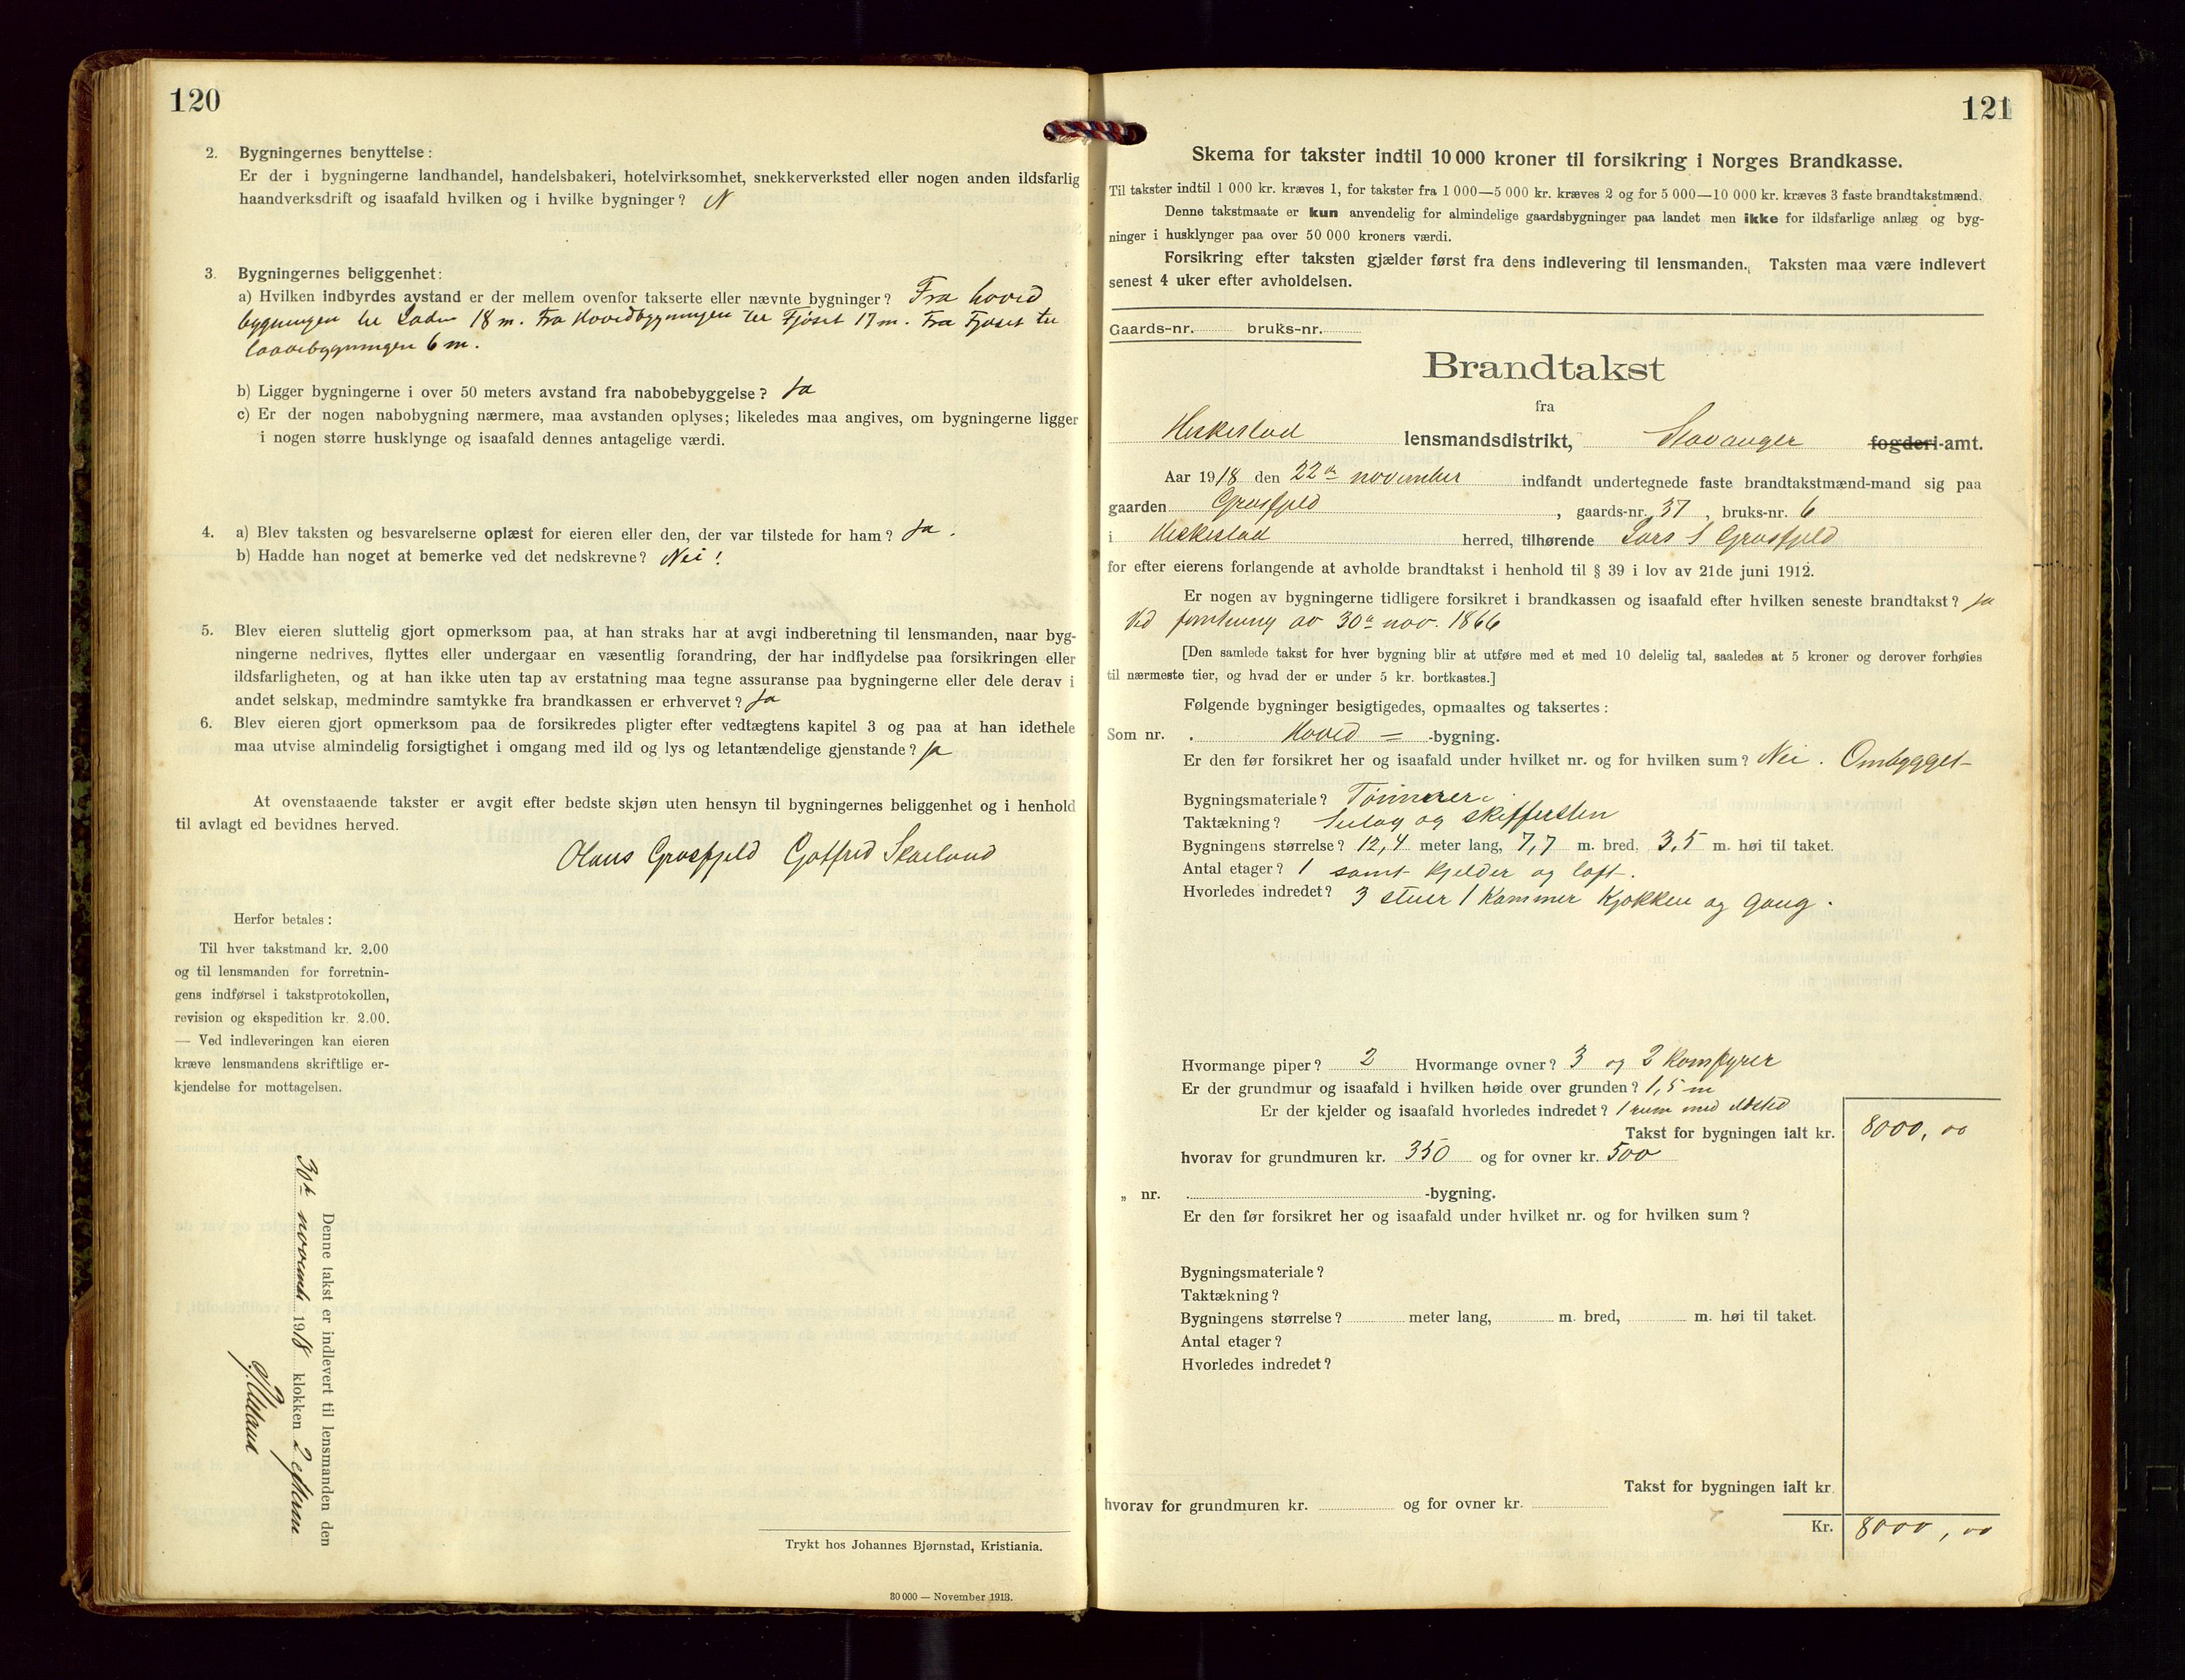 120
2. Bygningernes benyttelse:
Er der i bygningerne landhandel, handelsbakeri, hotelvirksomhet, snekkerverksted eller nogen anden ildsfarlig
haandverksdrift og isaafald hvilken og i hvilke bygninger? N
3. Bygningernes beliggenhet:
a) Hvilken indbyrdes avstand er der mellem ovenfor takserte eller nævnte bygninger? Fra hoved
bygningen til Laden 18 m. Fra Hovedbygningen til Fjøset 17 m. Fra Fjøset til
laavebygningen 6 m.
b) Ligger bygningerne i over 50 meters avstand fra nabobebyggelse? Ja
c) Er der nogen nabobygning nærmere, maa avstanden oplyses; likeledes maa angives, om bygningerne ligger
i nogen større husklynge og isaafald dennes antagelige værdi.
4. a) Blev taksten og besvarelserne oplæst for eieren eller den, der var tilstede for ham? Ja.
b) Hadde han noget at bemerke ved det nedskrevne? Nei!
5. Blev eieren sluttelig gjort opmerksom paa, at han straks har at avgi indberetning til lensmanden, naar byg-
ningerne nedrives, flyttes eller undergaar en væsentlig forandring, der har indflydelse paa forsikringen eller
ildsfarligheten, og at han ikke uten tap av erstatning maa tegne assuranse paa bygningerne eller dele derav i
andet selskap, medmindre samtykke fra brandkassen er erhvervet? Ja
6. Blev eieren gjort opmerksom paa de forsikredes pligter efter vedtægtens kapitel 3 og paa at han idethele
maa utvise almindelig forsigtighet i omgang med ild og lys og letantændelige gjenstande? Ja
At ovenstaaende takster er avgit efter bedste skjøn uten hensyn til bygningernes beliggenhet og i henhold
til avlagt ed bevidnes herved.
Olaus Grosfjeld Gotfred Skarland
Herfor betales:
Til hver takstmand kr. 2.00
og til lensmanden for forretnin-
gens indførsel i takstprotokollen,
revision og ekspedition kr. 2.00.
— Ved indleveringen kan eieren
kræve lensmandens skriftlige er-
kjendelse for mottagelsen.
Denne takst er indlevert til lensmanden den
30te novembr 1918 klokken 2 efterm
Trykt hos Johannes Bjørnstad, Kristiania.
30 000 — November 1913.
121
Skema for takster indtil 10 000 kroner til forsikring i Norges Brandkasse.
Til takster indtil 1 000 kr. kræves 1, for takster fra 1 000—5 000 kr. kræves 2 og for 5 000—10 000 kr. kræves 3 faste brandtakstmænd.
Denne takstmaate er kun anvendelig for almindelige gaardsbygninger paa landet men ikke for ildsfarlige anlæg og byg-
ninger i husklynger paa over 50 000 kroners værdi.
Forsikring efter taksten gjælder først fra dens indlevering til lensmanden. Taksten maa være indlevert
senest 4 uker efter avholdelsen.
Gaards-nr. bruks-nr.
Brandtakst
fra
Heskestad lensmandsdistrikt, Stavanger fogderi-amt.
Aar 1918 den 22de november indfandt undertegnede faste brandtakstmænd-mand sig paa
gaarden Grosfjeld, gaards-nr. 37, bruks-nr. 6
i Heskestad herred, tilhørende Lars S Grosfjeld
for efter eierens forlangende at avholde brandtakst i henhold til § 39 i lov av 21de juni 1912.
Er nogen av bygningerne tidligere forsikret i brandkassen og isaafald efter hvilken seneste brandtakst? Ja
Ved forretning av 30te nov. 1866
[Den samlede takst for hver bygning blir at utføre med et med 10 delelig tal, saaledes at 5 kroner og derover forhøies
til nærmeste tier, og hvad der er under 5 kr. bortkastes.]
Følgende bygninger besigtigedes, opmaaltes og taksertes:
Som nr. . Hoved = -bygning.
Er den før forsikret her og isaafald under hvilket nr. og for hvilken sum? Nei. Ombygget
Bygningsmateriale? Tømmer
Taktækning? Sulag og skiffersten
Bygningens størrelse? 12,4 meter lang, 7,7 m. bred, 3,5 m. høi til taket.
Antal etager? 1 samt Kjelder og loft.
Hvorledes indredet? 3 stuer 1 Kammer Kjøkken og gang.
Hvormange piper? 2 Hvormange ovner? 3 og 2 Komfyrer
Er der grundmur og isaafald i hvilken høide over grunden? 1,5 m
Er der kjelder og isaafald hvorledes indredet? 1 rum med ildsted
Takst for bygningen ialt kr. 8000,00
hvorav for grundmuren kr. 350 og for ovner kr. 500
„ nr. . -bygning.
Er den før forsikret her og isaafald under hvilket nr. og for hvilken sum?
Bygningsmateriale?
Taktækning?
Bygningens størrelse? meter lang, m. bred, m. høi til taket.
Antal etager?
Hvorledes indredet?
Takst for bygningen ialt kr.
hvorav for grundmuren kr. og for ovner kr.
Kr. 8000,00